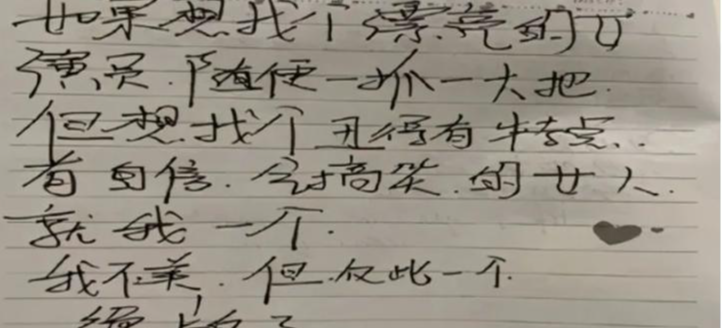 如果想找个漂亮的女
演员.随便一抓一大把.
但想找个丑得有特点..
有自信.会搞笑.的女人.
就我一个.
我不美.但仅此一个.